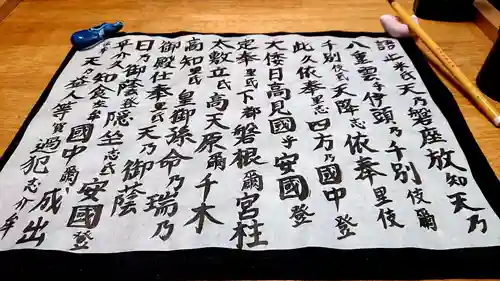 語止米氐天乃磐座放知天乃
八重雲乎伊頭乃千別伎爾
千別伎氐天降志依奉里伎
此久依奉里志四方乃國中登
大倭日高見國乎安國登
定奉里氐下都磐根爾宮柱
太敷立氐高天原爾千木
高知氐皇御孫命乃瑞乃
御殿仕奉里氐天乃御蔭
日乃御蔭登隠坐志氐安國登
平介久知食左牟國中爾成出
天乃益人等賀過犯志介牟